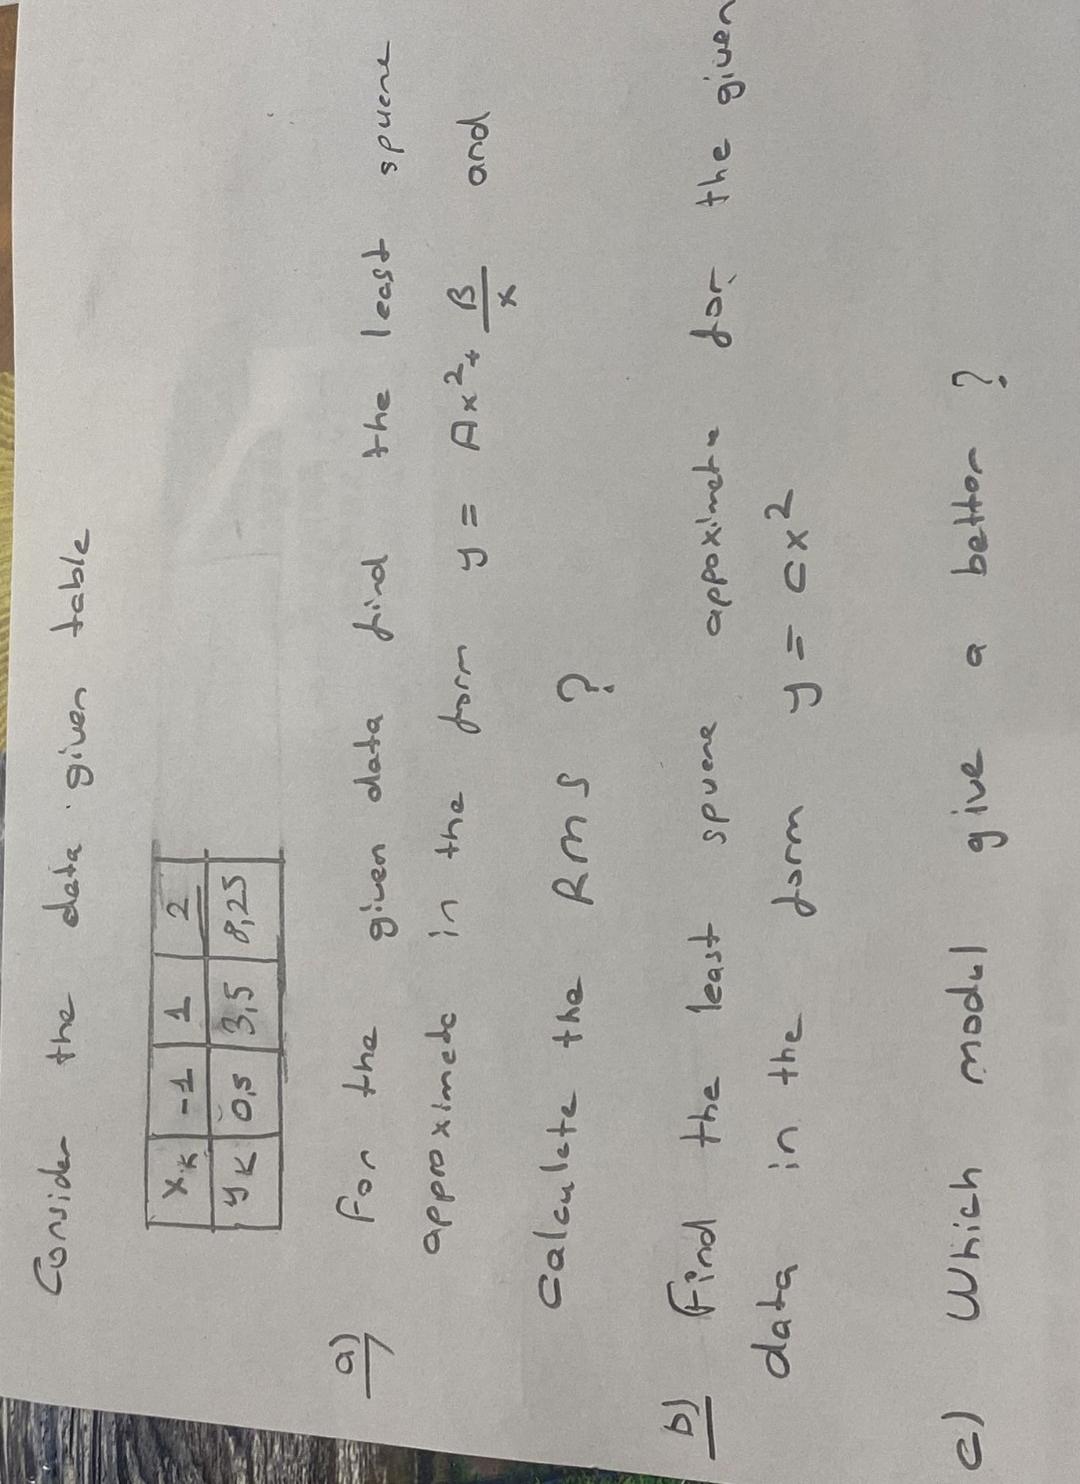 Consider the data given table
xₖ -1 1 2
yₖ 0,5 3,5 8,25
a) For the given data find the least squere
approximate in the form y = Ax² + B/x and
Calculate the RMS ?
b) Find the least squere appoximate for the given
data in the form y = cx²
c) Which modul give a better ?